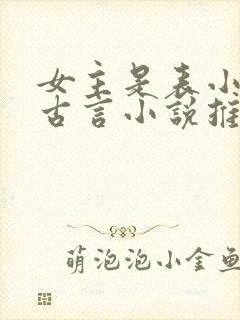 女主是表小
古言小说推
萌泡泡小金鱼